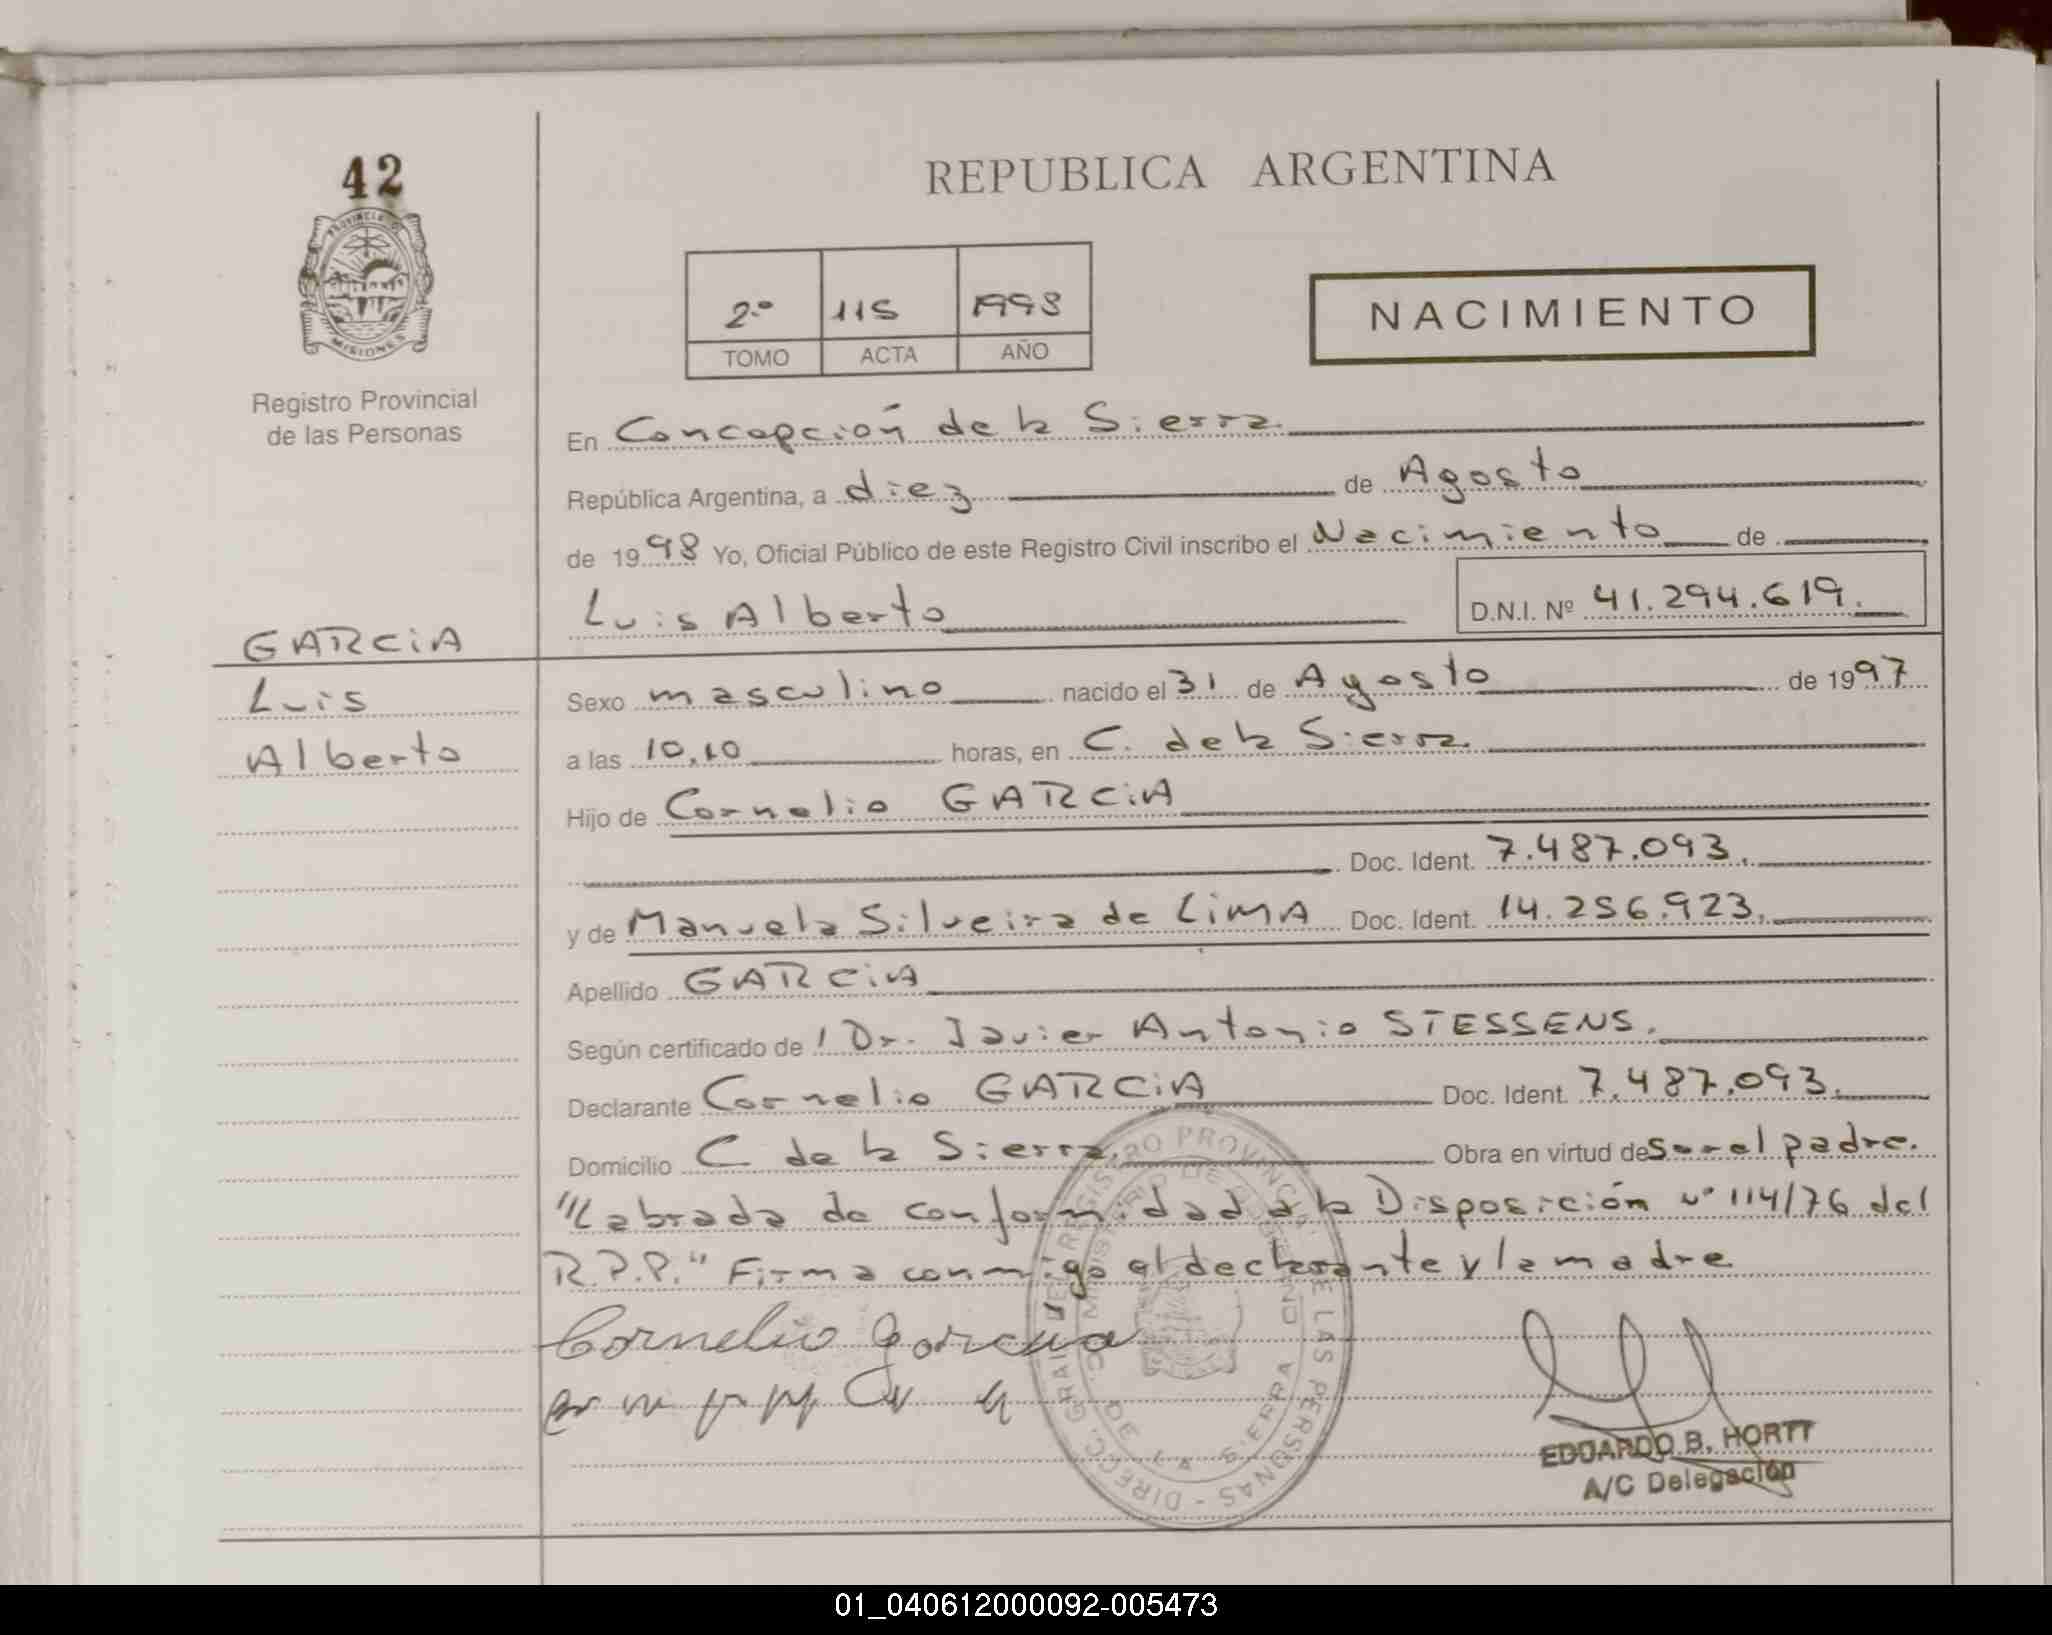 42
PROVINCIA DE
MISIONES
Registro Provincial
de las Personas
REPUBLICA ARGENTINA
2º 115 1998
TOMO ACTA AÑO
NACIMIENTO
En Concepción de la Sierra
República Argentina, a diez de Agosto
de 1998 Yo, Oficial Público de este Registro Civil inscribo el Nacimiento de
Luis Alberto D.N.I. Nº 41.294.619.
GARCiA
Luis
Alberto
Sexo masculino nacido el 31 de Agosto de 1997
a las 10,10 horas, en C. de la Sierra
Hijo de Cornelio GARCiA
Doc. Ident. 7.487.093.
y de Manuela Silveira de LiMA Doc. Ident. 14.256.923.
Apellido GARCiA
Según certificado de / Dr. Javier Antonio STESSENS.
Declarante Cornelio GARCiA Doc. Ident. 7.487.093.
Domicilio C de la Sierra. Obra en virtud de Ser el padre.
"Labrada de conformidad a la Disposición nº 114/76 del
R.P.P." Firma conmigo el declarante y la madre
Cornelio Garcia
DIRECC. GRAL. DEL REGISTRO PROVINCIAL DE LAS PERSONAS
MINISTERIO DE GOBIERNO
C. DE LA SIERRA
EDUARDO B. HORTT
A/C Delegación
01_040612000092-005473